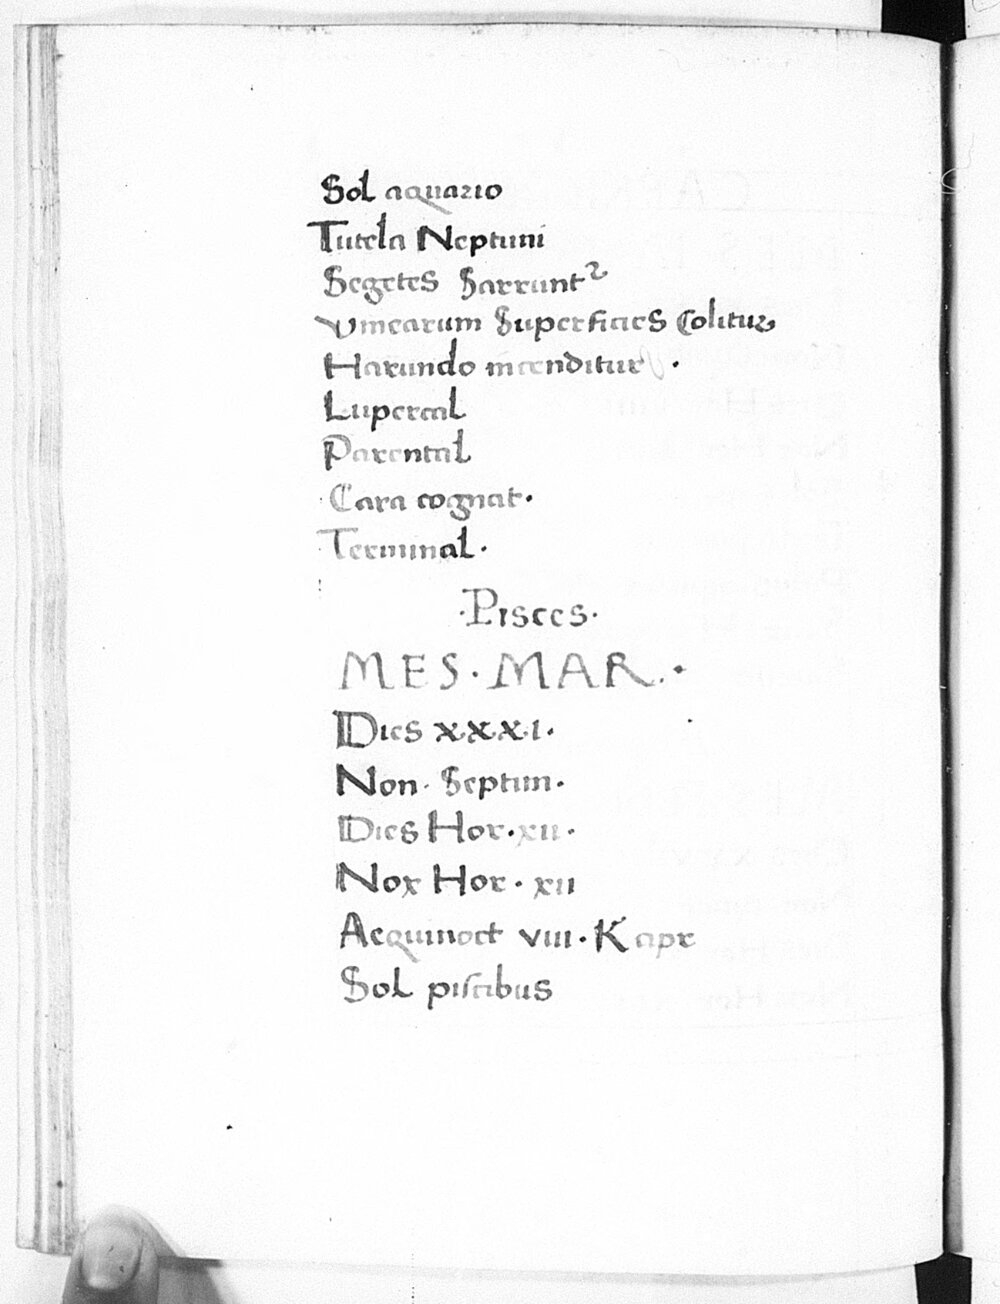 Sol aquario
Tutela Neptuni
Segetes Sarrunt²
Vinearum Superficies Colitur
Harundo incenditur ·
Lupercal
Parental
· Cara cognat·
Terminal·
·Pisces·
MES · MAR ·
Dies xxxi·
Non · Septim·
Dies Hor·xii·
Nox Hor· xii
Aequinoct viii·K apr
Sol piscibus